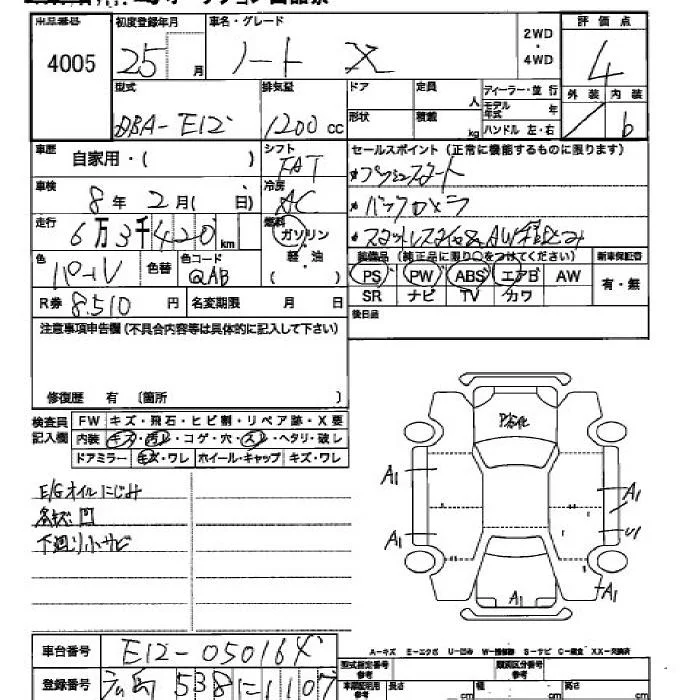 出品番号 初度登録年月 車名・グレード 2WD・4WD 評価点
4005 25 月 ノート X 4
外装 内装
b
型式 排気量 ドア 定員 人 ディーラー・並行
DBA-E12 1200 cc 形状 積載 kg モデル年式 年
ハンドル 左・右
車歴 自家用・( ) シフト FAT セールスポイント(正常に機能するものに限ります)
車検 8年 2月( 日) 冷房 AC プッシュスタート
バックカメラ
走行 6万3千420km 燃料 ガソリン・軽・油 ( ) スタットレスタイヤ&AW積込み
色 色替 色コード QAB 装備品(純正品に限り○をつけてください) 新車保証書
PS PW ABS エアB AW 有・無
R券 8.510 円 名変期限 月 日 SR ナビ TV カワ
注意事項申告欄(不具合内容等は具体的に記入して下さい) 後日品
修復歴 有 〔箇所 〕
検査員記入欄 FW キズ・飛石・ヒビ割・リペア跡・X要
内装 キズ・汚レ・コゲ・穴・スレ・ヘタリ・破レ
ドアミラー キズ・ワレ ホイール・キャップ キズ・ワレ
E/Gオイルにじみ
各キズ凹
下廻り小サビ
A1 A1
A1 U1
A1 A1
車台番号 E12-050164
A-キズ E-エクボ U-凹み W-補修跡 S-サビ C-腐食 XX-交換済
登録番号 広島 538 に 1107
型式指定番号 参考 類別区分番号 参考
車輌記載用 参考 長さ cm 幅 cm 高さ cm